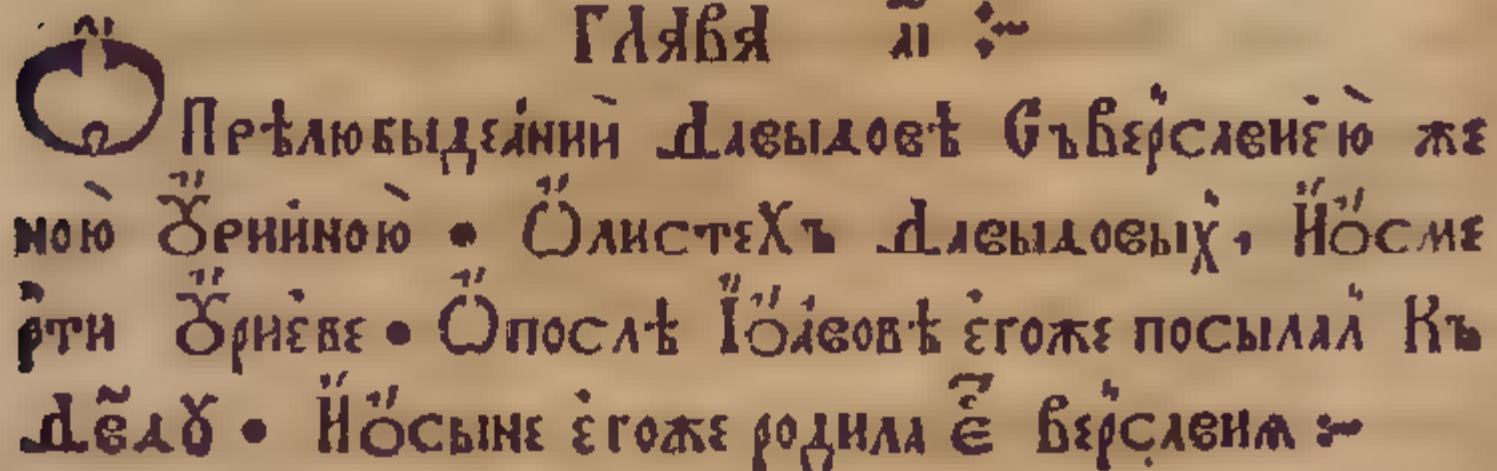 ГЛАВА а҃і :~
Ѡ҆ Прѣлюбыдеа́нии̇̀ Давыдовѣ Съве́рсавеиє̇ю̀ же
ною̀ Ѹ҆рии́ною̀ • Ѡ҆листехъ Давыдовы́х , Ио҆сме
рти Ѹ҆риеве • Ѡ҆послѣ Іѻ҆авовѣ егоже посылал Къ
Дв҃дѹ • Ио҆сыне егоже родила е҃ Версавиѧ :~